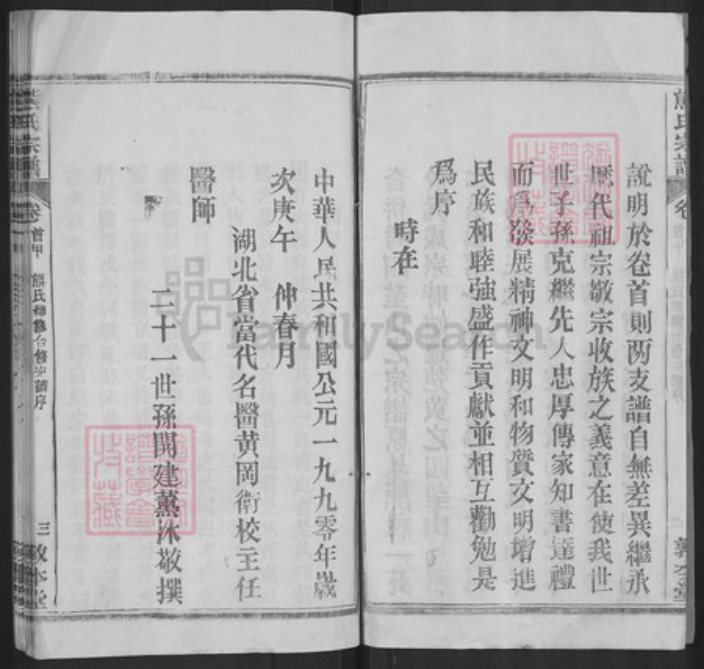 說明於卷首則兩支譜自無差異繼承
歷代祖宗敬宗收族之義意在使我世
世子孫克繼先人忠厚傳家知書達禮
而爲發展精神文明和物質文明增進
民族和睦強盛作貢獻並相互勸勉是
爲序
時在
中華人民共和國公元一九九零年歲
次庚午 仲春月
湖北省當代名醫黃岡衛校主任
醫師
二十一世孫開建薰沐敬撰
熊氏宗譜
卷首甲
熊氏 合修宗譜序
三
敦本堂
熊氏宗譜
卷
敦本堂
FamilySearch